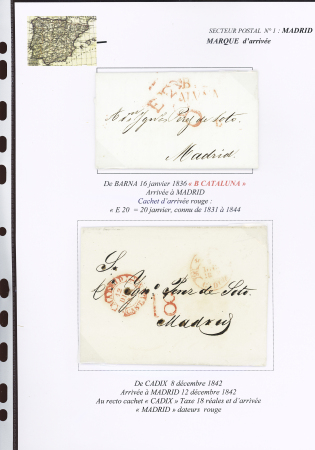 SECTEUR POSTAL N° 1 : MADRID
MARQUE d'arrivée
Madrid.
De BARNA 16 janvier 1836 « B CATALUNA »
Arrivée à MADRID
Cachet d'arrivée rouge :
« E 20 = 20 janvier, connu de 1831 à 1844
Sr
Dn Ygno Perez de Soto.
Madrid
De CADIX 8 décembre 1842
Arrivée à MADRID 12 décembre 1842
Au recto cachet « CADIX » Taxe 18 réales et d'arrivée
« MADRID » dateurs rouge